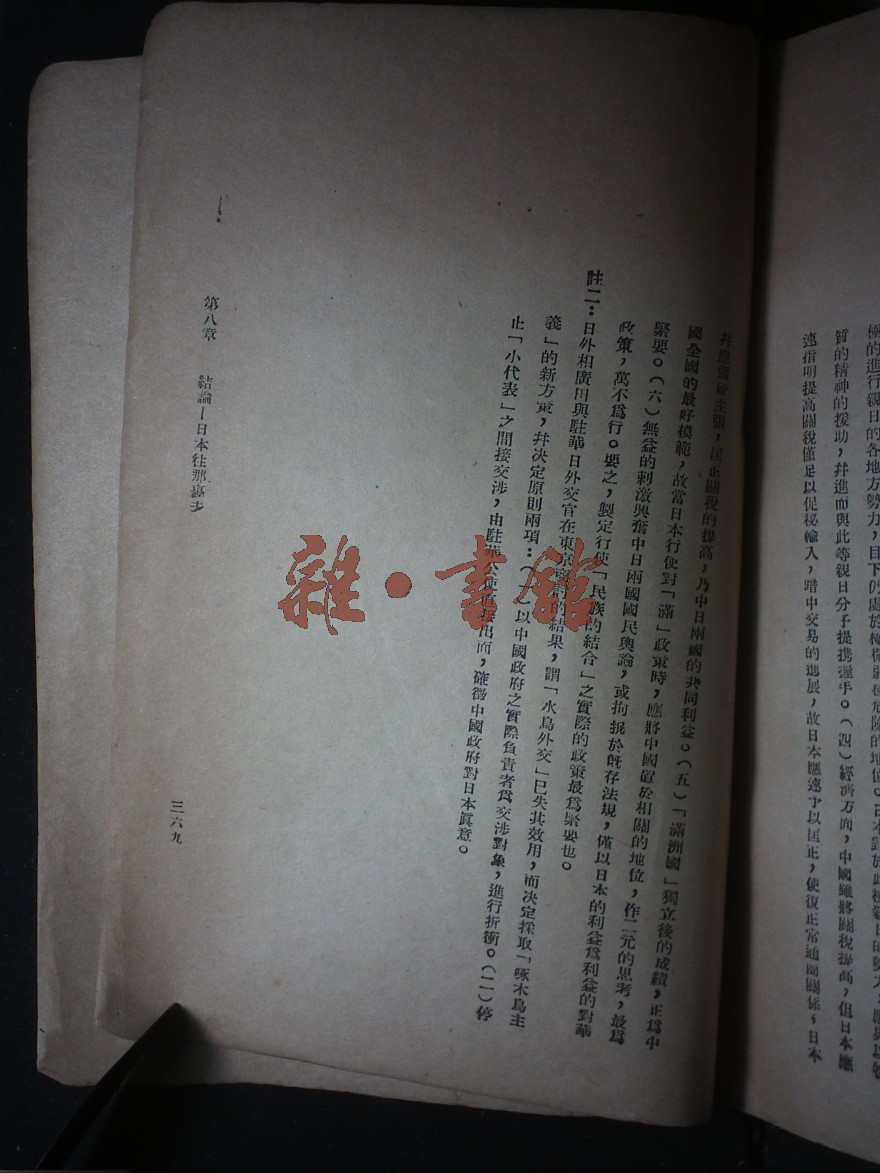 極的進行親日的各地方勢力，目下仍處於極
質的精神的援助，幷進而與此等親日分子提携握手。（四）經濟方面，中國雖將關稅提高，但日本應
速指明提高關稅僅足以促秘輸入，暗中交易的進展，故日本應速予以匡正，使復正常通商關係，日本
主張，匡正關稅的提高，乃中日兩國的共同利益。（五）「滿洲國」獨立後的成績，正爲中
國全國的最好模範，故當日本行使對「滿」政策時，應將中國置於相關的地位，作二元的思考，最爲
緊要。（六）無益的刺激興奮中日兩國國民輿論，或拘泥於旣存法規，僅以日本的利益爲利益的對華
政策，萬不爲行。要之，製定行使「民族的結合」之實際的政策最爲緊要也。
註二：日外相廣田與駐華日外交官在東京 的結果，謂「水鳥外交」已失其效用，而決定採取「啄木鳥主
義」的新方策，幷決定原則兩項：（一）以中國政府之實際負責者爲交涉對象，進行折衝。（二）停
止「小代表」之間接交涉，由駐華公使直接出面，確徵中國政府對日本眞意。
第八章 結論—日本往那裏去
三六九
雜·書館